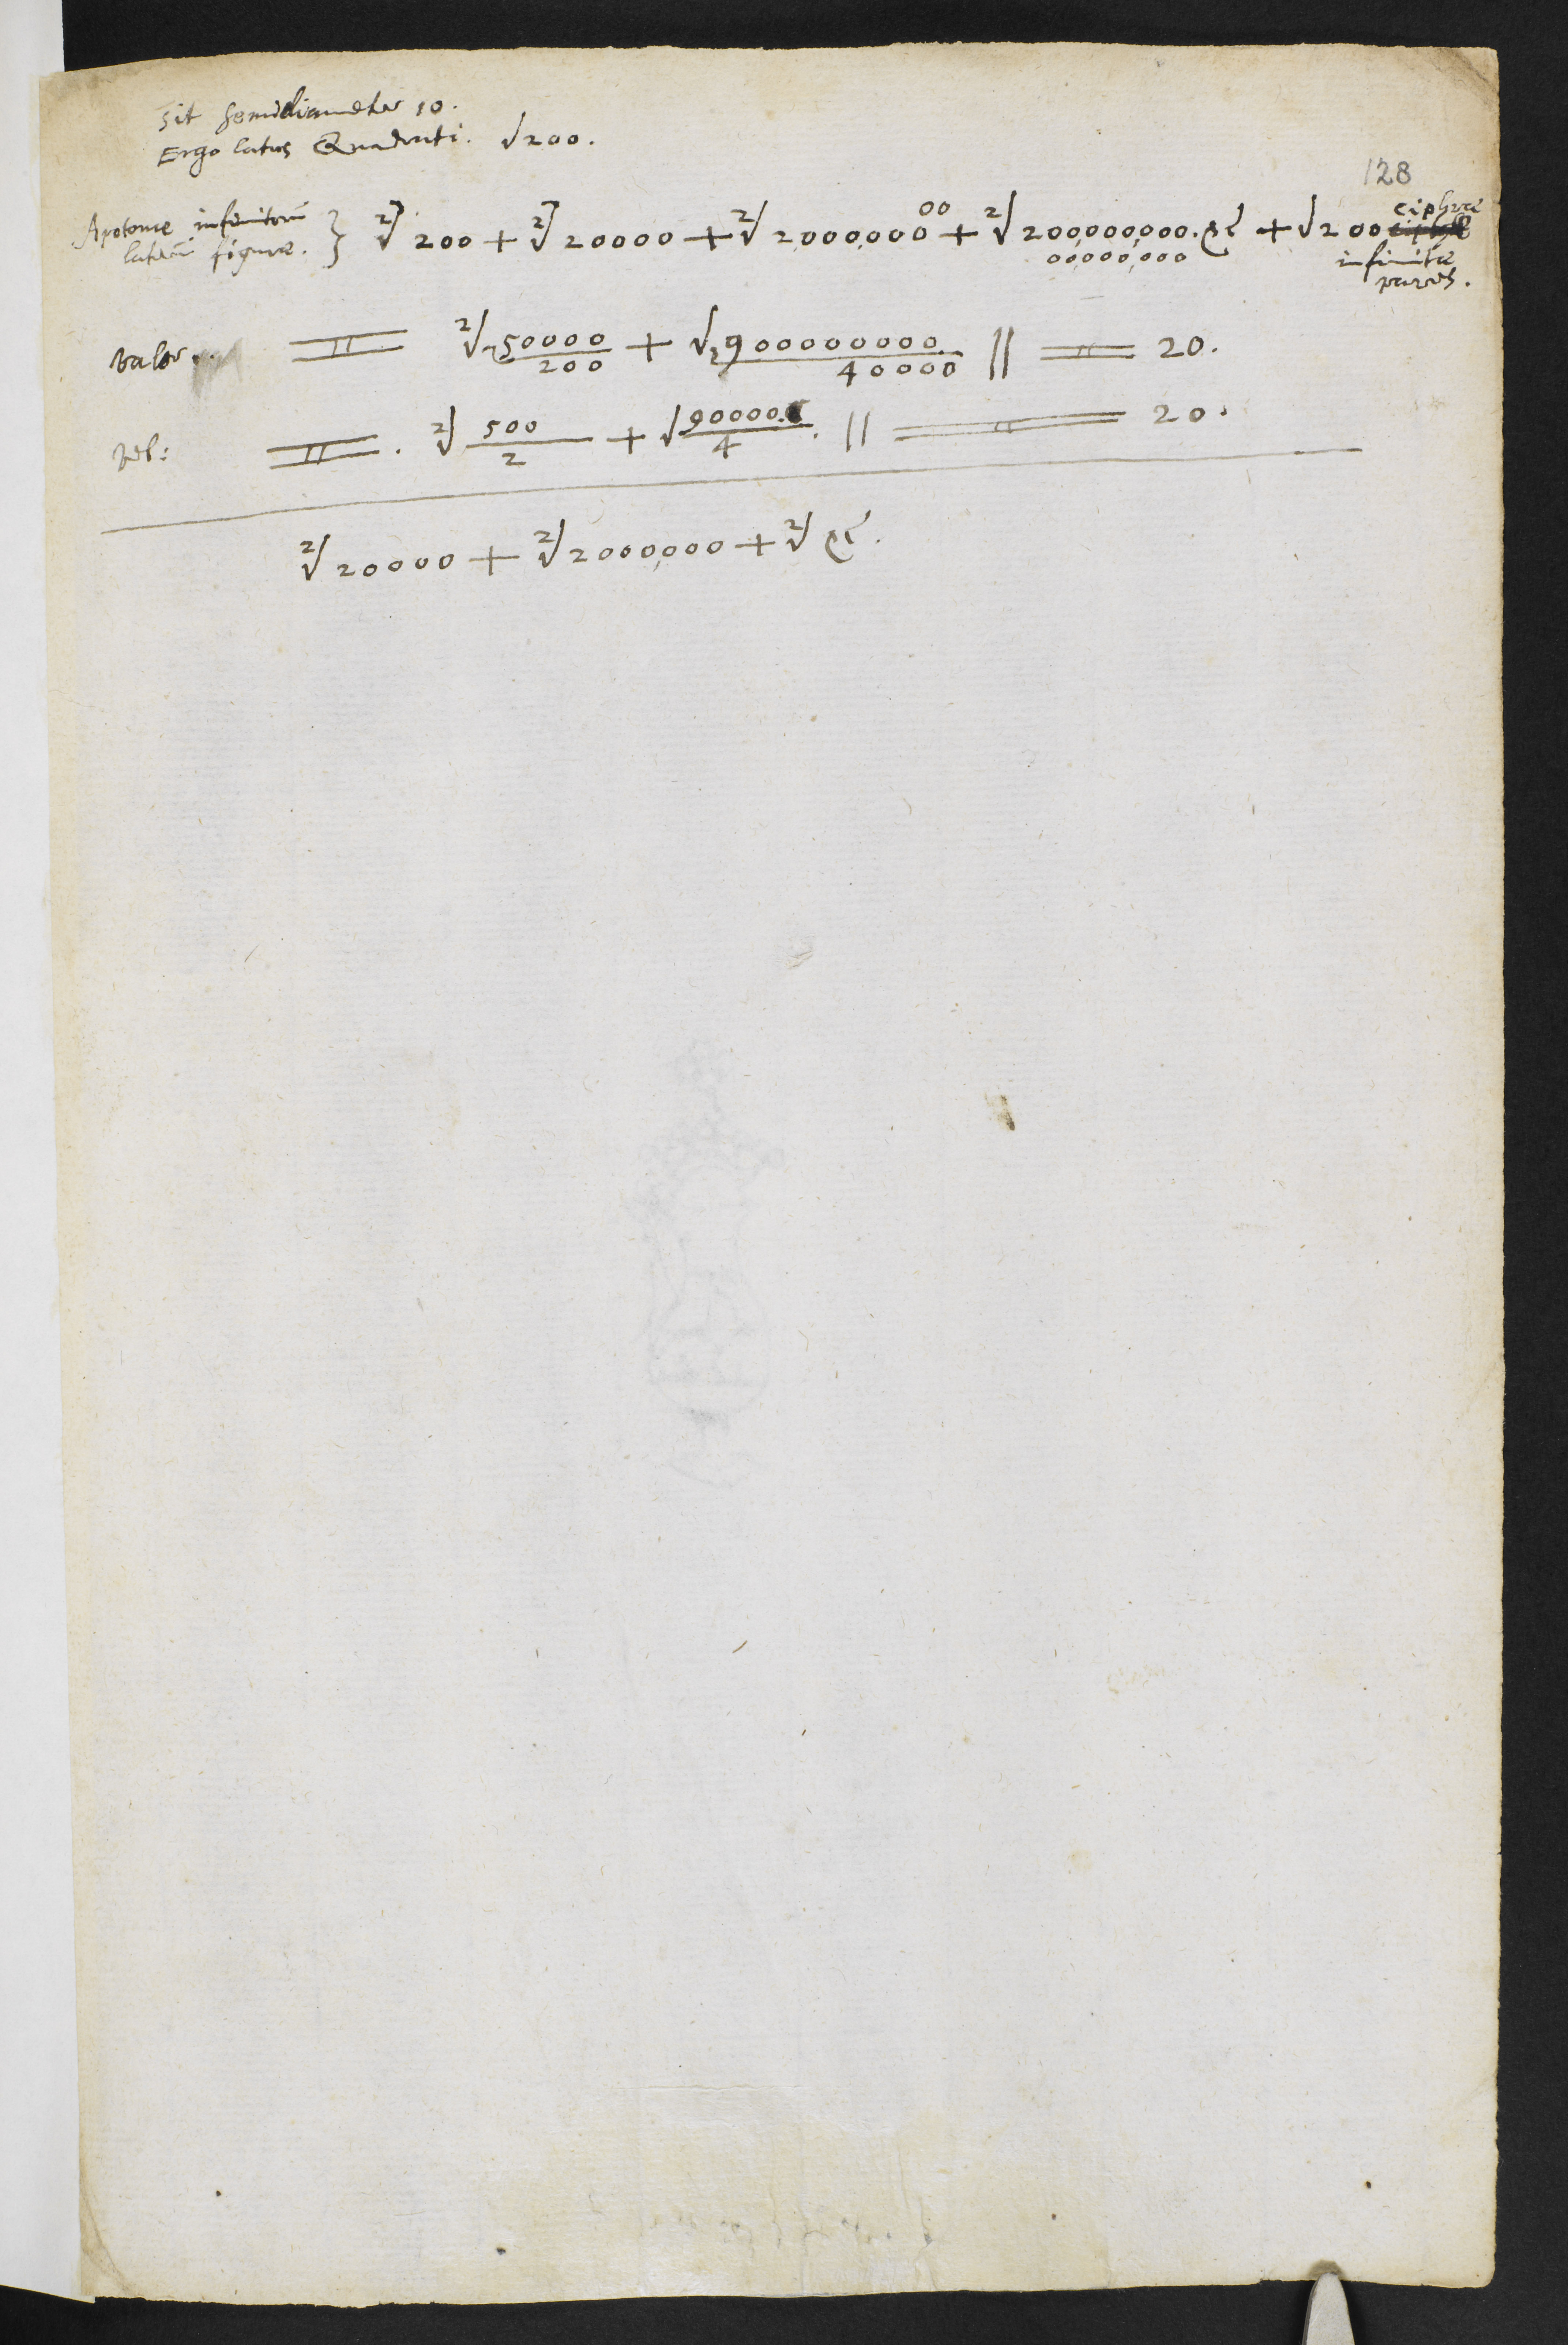 Sit semidiameter 10.
Ergo latus Quadrati. √200.
128
Apotome infinitorū laterū figuræ. } ²√200 + ²√20000 + ²√2000,000 00 + ²√200,000,000. &c + √200 ciphræ infinitæ pares.
00,000,000
valor. = ²√ 50000/200 + √ 900000000/40000 || = 20.
vel: = . ²√ 500/2 + √ 90000/4 . || = 20.
²√20000 + ²√2000,000 + ²√ &c.